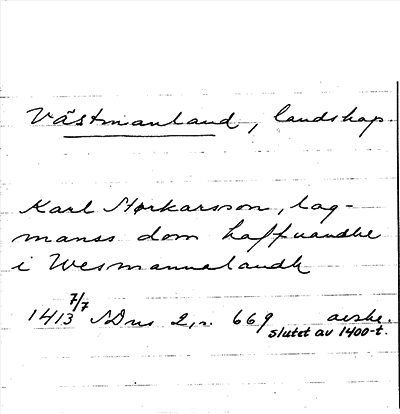 Västmanland, landskap.
Karl Morkarsson, lag-
manss dom haffuandhe
i Wesmannalandh
1413 7/7 SDns 2, n. 669 avskr.
slutet av 1400-t.